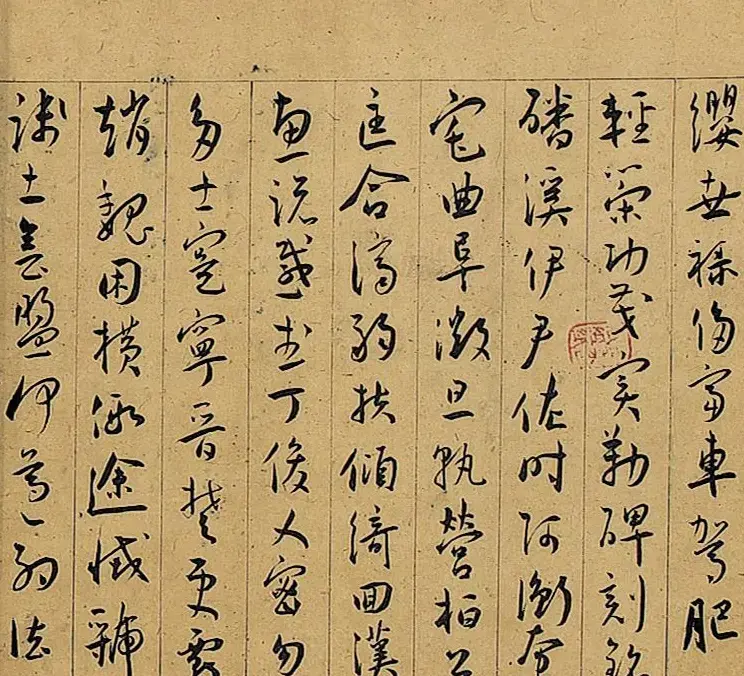 纓世祿侈富車駕肥
輕策功茂實勒碑刻銘
磻溪伊尹佐時阿衡奄
宅曲阜微旦孰營桓公
匡合濟弱扶傾綺回漢
惠説感武丁俊乂密勿
多士寔寧晉楚更霸
趙魏困橫假途滅虢
踐土會盟何遵約法